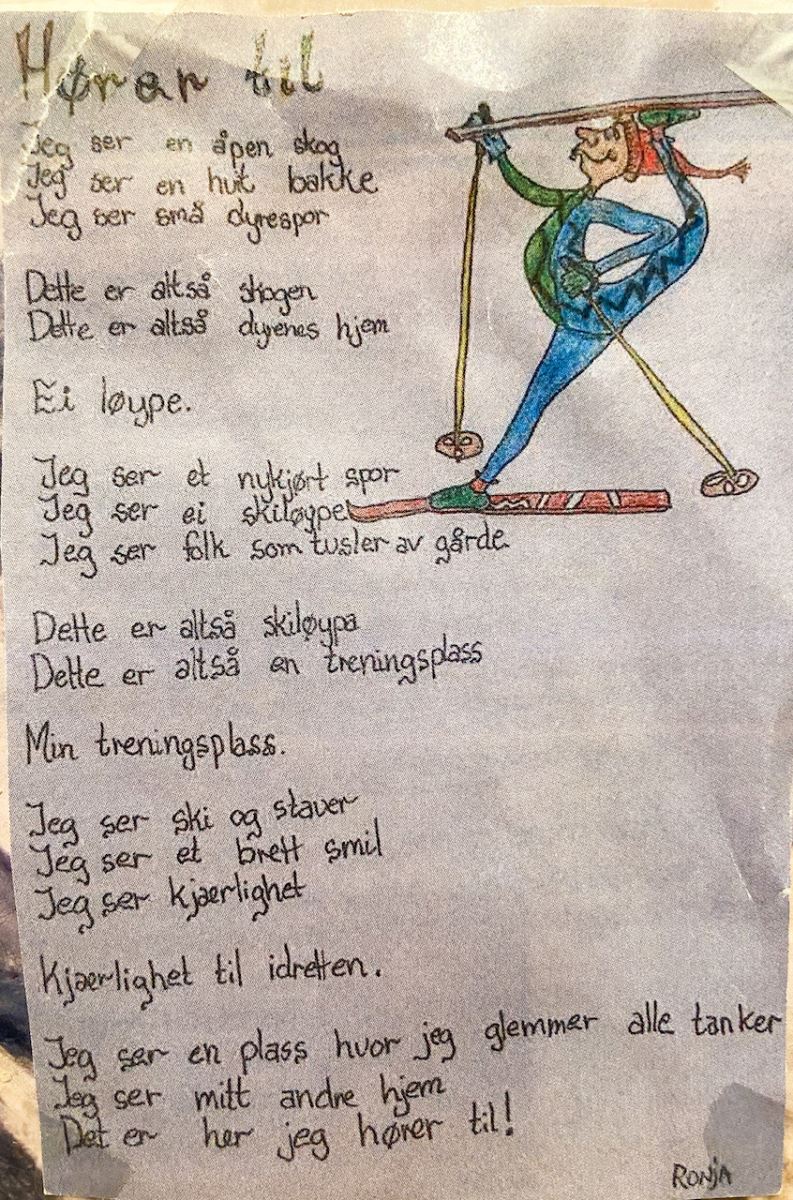 Hører til
Jeg ser en åpen skog
Jeg ser en hvit bakke
Jeg ser små dyrespor
Dette er altså skogen
Dette er altså dyrenes hjem
Ei løype.
Jeg ser et nykjørt spor
Jeg ser ei skiløype
Jeg ser folk som tusler av gårde
Dette er altså skiløypa
Dette er altså en treningsplass
Min treningsplass.
Jeg ser ski og staver
Jeg ser et brett smil
Jeg ser kjærlighet
Kjærlighet til idretten.
Jeg ser en plass hvor jeg glemmer alle tanker
Jeg ser mitt andre hjem
Det er her jeg hører til!
RONJA